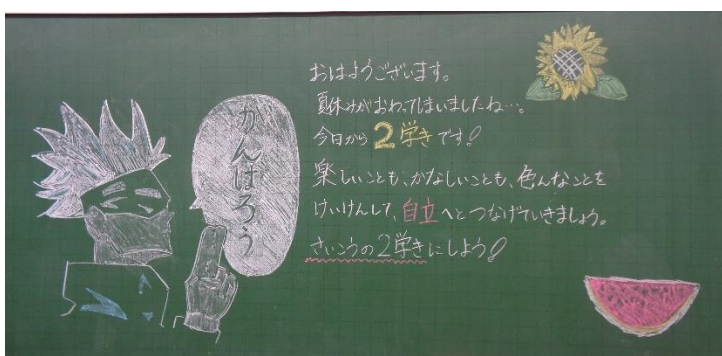 がんばろう
おはようございます。
夏休みがおわってしまいましたね…。
今日から2学きです!
楽しいことも、かなしいことも、色んなことを
けいけんして、自立へとつなげていきましょう。
さいこうの2学きにしよう!